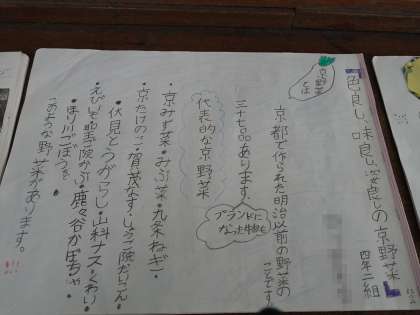 色良し、味良し、姿良しの京野菜
四年二組
京野菜とは
京都で作られた明治以前の野菜のことです。
三十七品あります。
ブランドになった物も
代表的な京野菜
・京みず菜・みぶ菜・九条ねぎ・
京たけのこ・賀茂なす・しょうご院だいこん・
・伏見とうがらし・山科ナス・くわい・
えびいも・聖ご院かぶ・鹿ヶ谷かぼちゃ・
・ほり川ごぼうを・
このような野菜があります。